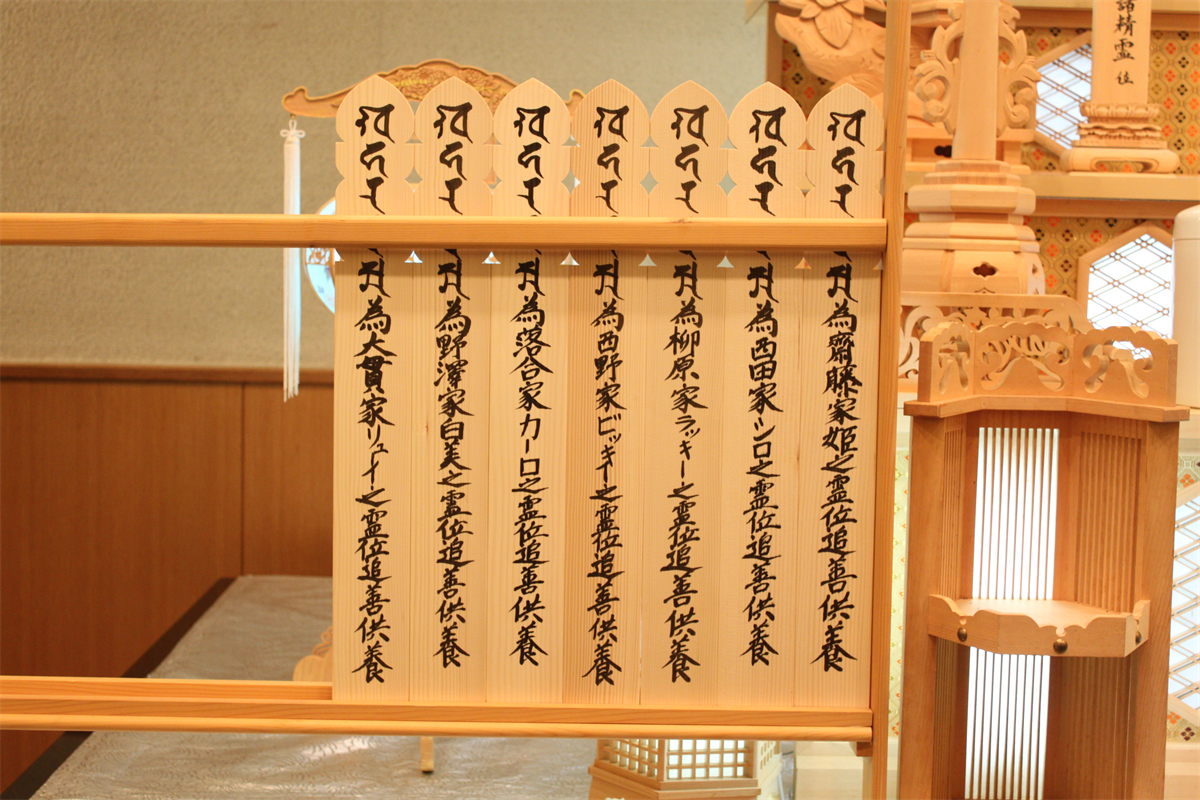 為齋藤家姫之霊位追善供養
為西田家シロ之霊位追善供養
為柳原家ラッキー之霊位追善供養
為西野家ビッキー之霊位追善供養
為落合家カーロ之霊位追善供養
為野澤家白美之霊位追善供養
為大貫家リュイー之霊位追善供養
諸精霊位